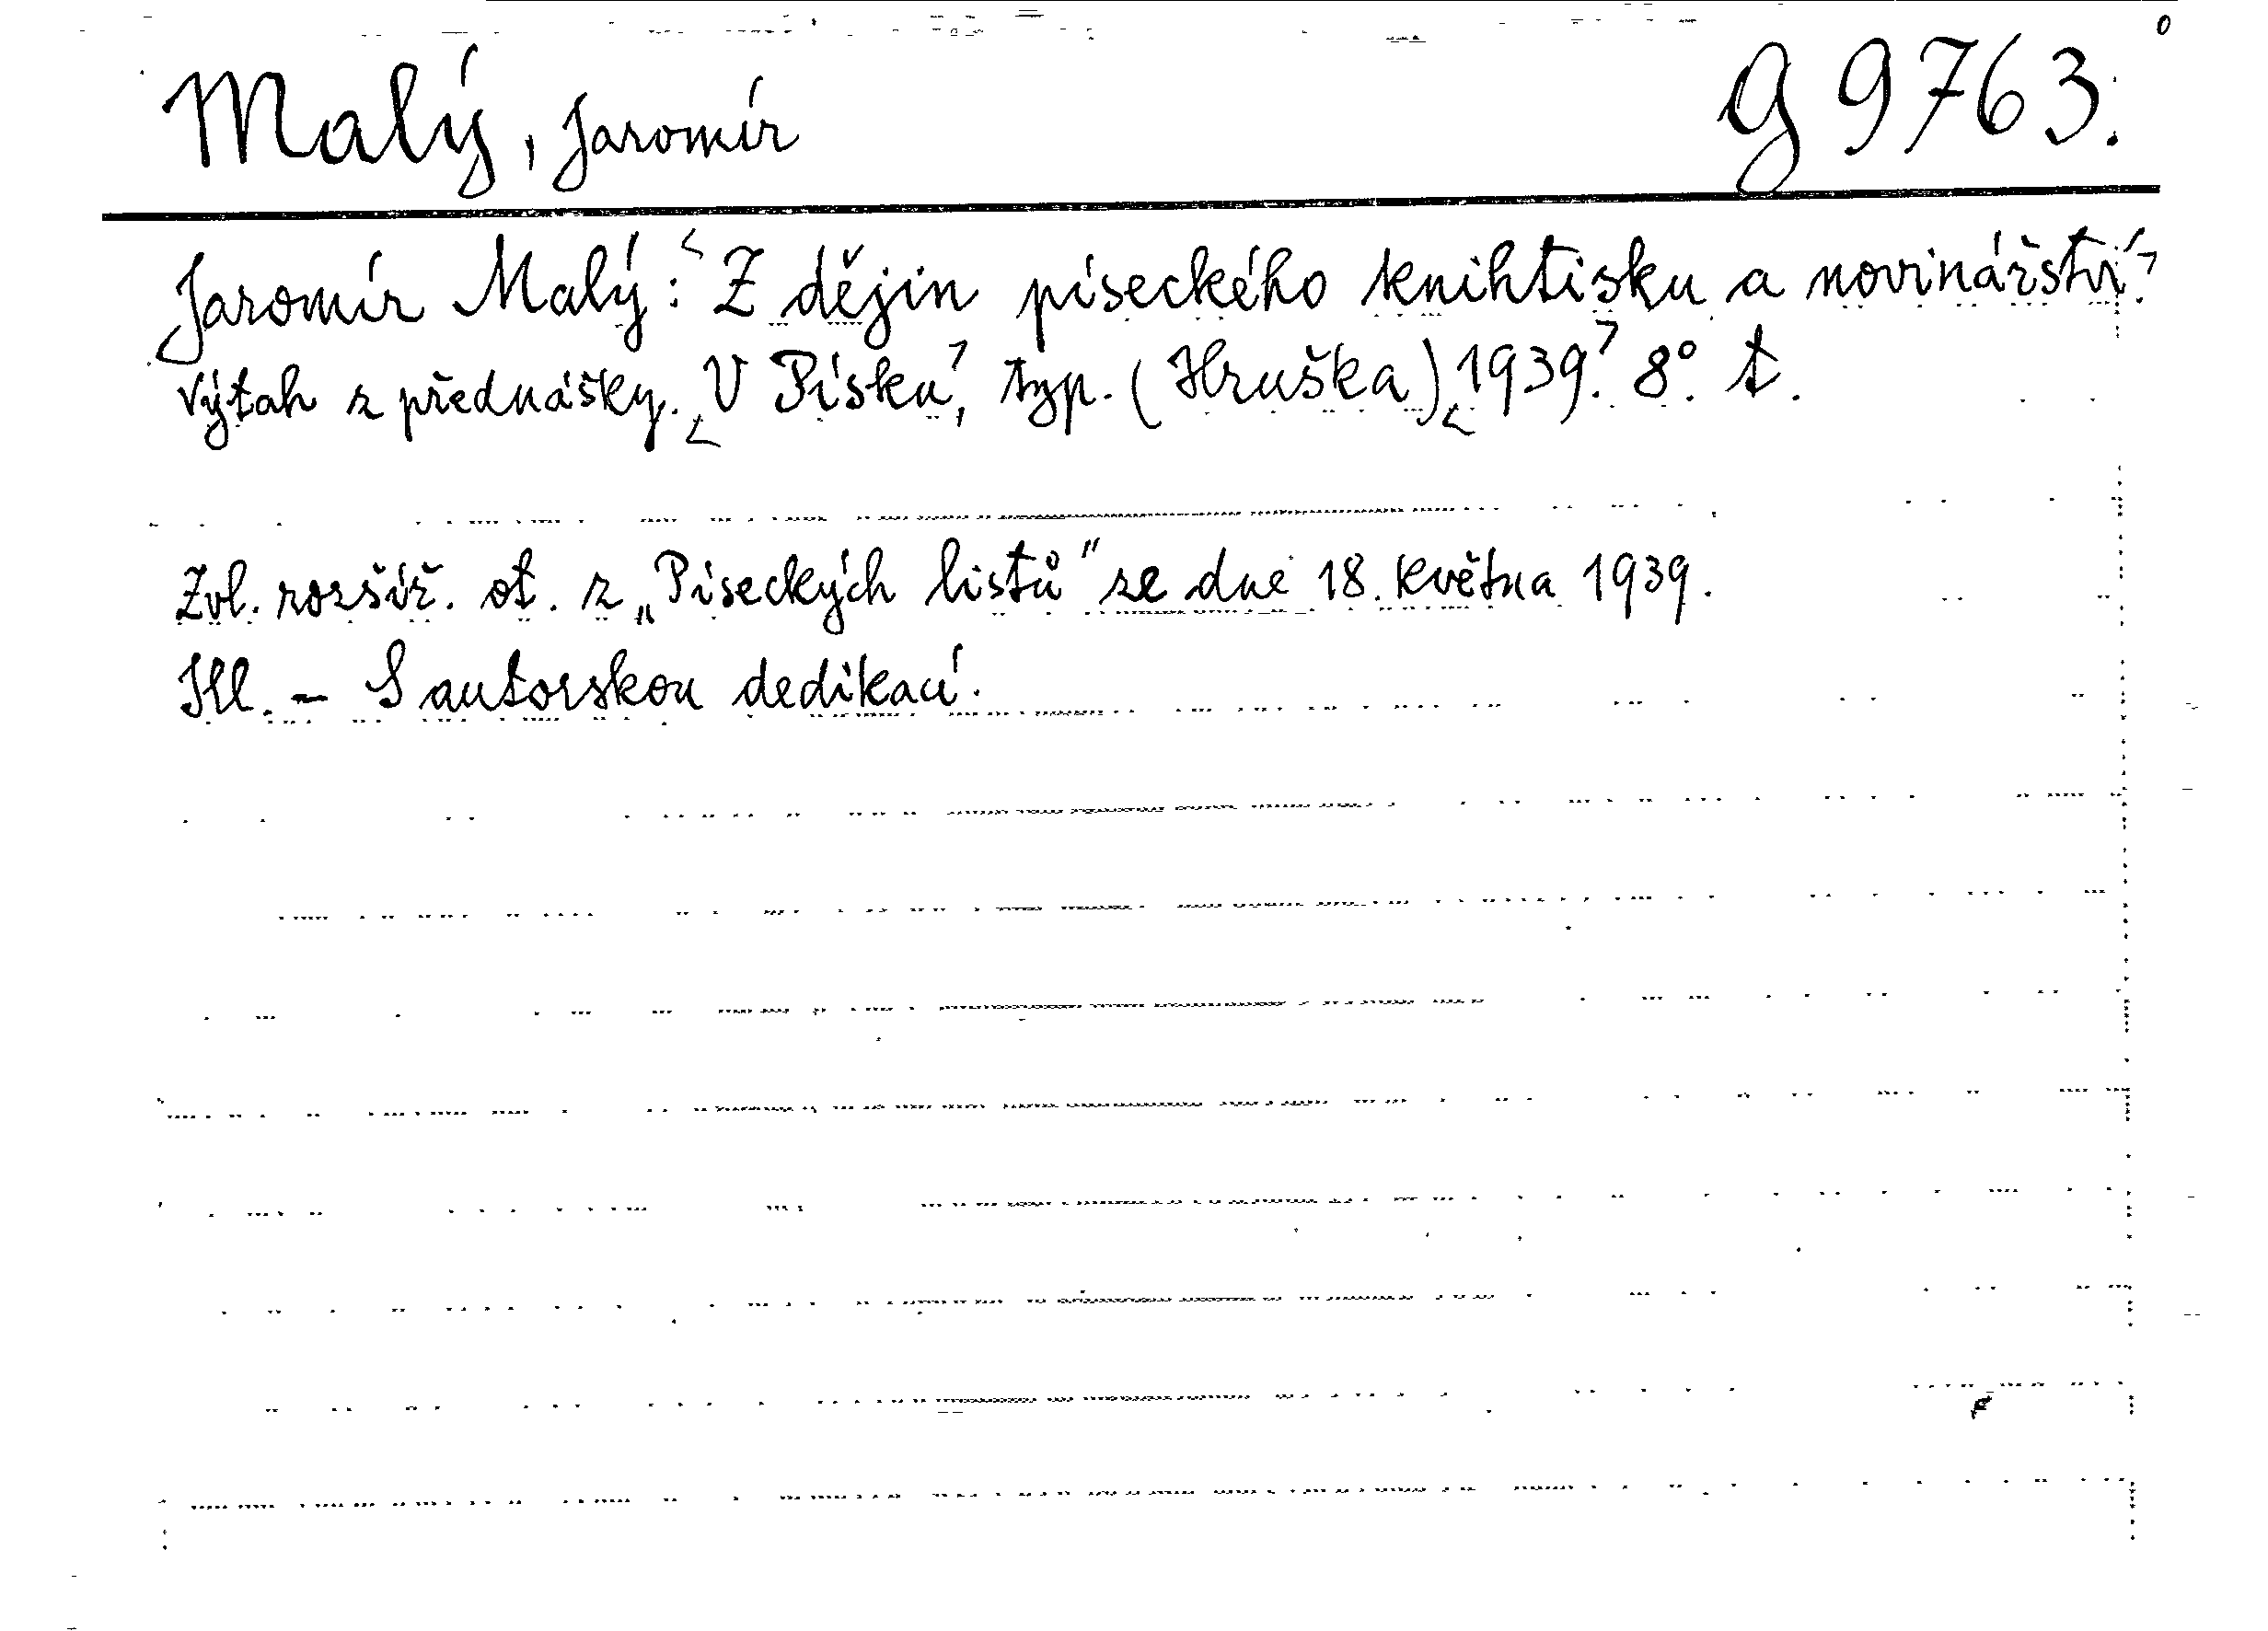 Malý, Jaromír g 9763.
Jaromír Malý: Z dějin píseckého knihtisku a novinářství.
Výtah z přednášky. V Písku, typ. (Hruška) 1939. 8°. t.
Zvl. rozšíř. ot. z „Píseckých listů" ze dne 18. května 1939.
Ill. - S autorskou dedikací.